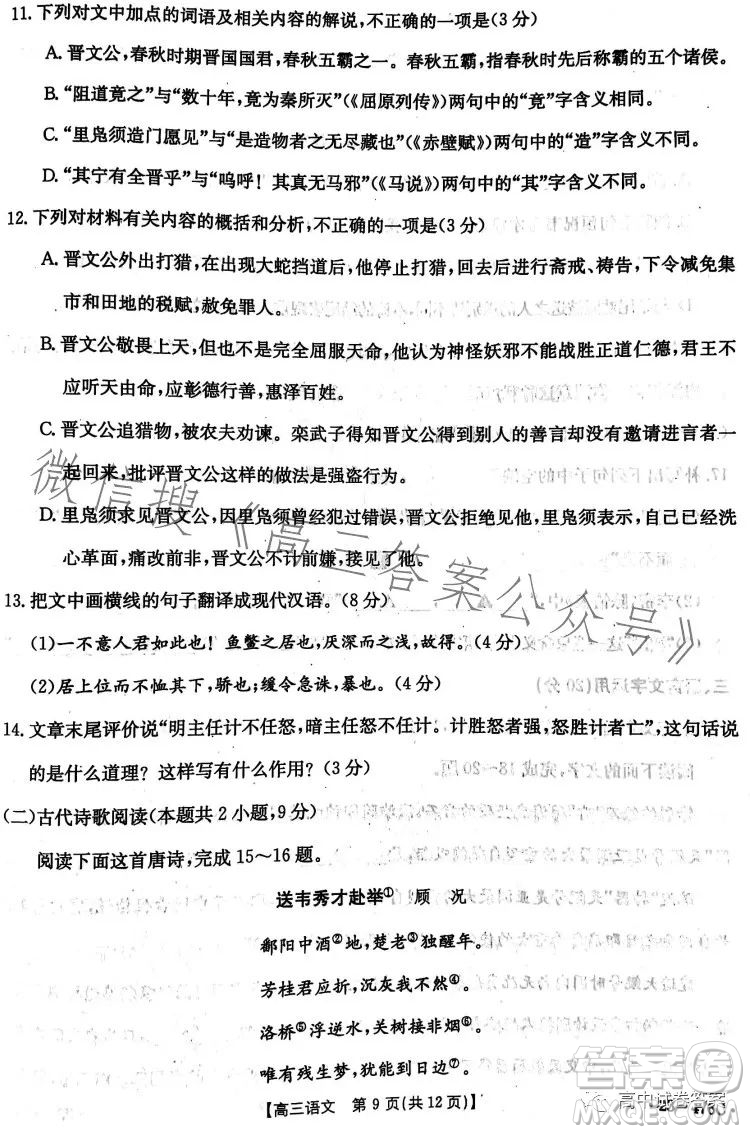 11. 下列对文中加点的词语及相关内容的解说,不正确的一项是(3分)
A. 晋文公,春秋时期晋国国君,春秋五霸之一。春秋五霸,指春秋时先后称霸的五个诸侯。
B. “阻道竟之”与“数十年,竟为秦所灭”(《屈原列传》)两句中的“竟”字含义相同。
C. “里凫须造门愿见”与“是造物者之无尽藏也”(《赤壁赋》)两句中的“造”字含义不同。
D. “其宁有全晋乎”与“呜呼!其真无马邪”(《马说》)两句中的“其”字含义相同。
12. 下列对材料有关内容的概括和分析,不正确的一项是(3分)
A. 晋文公外出打猎,在出现大蛇挡道后,他停止打猎,回去后进行斋戒、祷告,下令减免集
市和田地的税赋,赦免罪人。
B. 晋文公敬畏上天,但不是完全屈服天命,他认为神怪妖邪不能战胜正道仁德,君王不
应听天由命,应彰德行善,惠泽百姓。
C. 晋文公追猎物,被农夫劝谏。栾武子得知晋文公得到别人的善言却没有邀请进言者一
起回来,批评晋文公这样的做法是强盗行为。
D. 里凫须求见晋文公,因里凫须曾经犯过错误,晋文公拒绝见他,里凫须表示,自己已经洗
心革面,痛改前非,晋文公不计前嫌,接见了他。
13. 把文中画横线的句子翻译成现代汉语。(8分)
(1)一不意人君如此也!鱼鳖之居也,厌深而之浅,故得。(4分)
(2)居上位而不恤其下,骄也;缓令急诛,暴也。(4分)
14. 文章末尾评价说“明主任计不任怒,暗主任怒不任计。计胜怒者强,怒胜计者亡”,这句话说
的是什么道理?这样写有什么作用?(3分)
(二)古代诗歌阅读(本题共2小题,9分)
阅读下面这首唐诗,完成15~16题。
送韦秀才赴举① 顾 况
鄱阳中酒②地,楚老③独醒年。
芳桂君应折,沉灰我不然④。
洛桥⑤浮逆水,关树接非烟⑥。
唯有残生梦,犹能到日边⑦。
【高三语文 第9页(共12页)】
微信搜《高三答案公众号》
答案卷
高中试卷答案